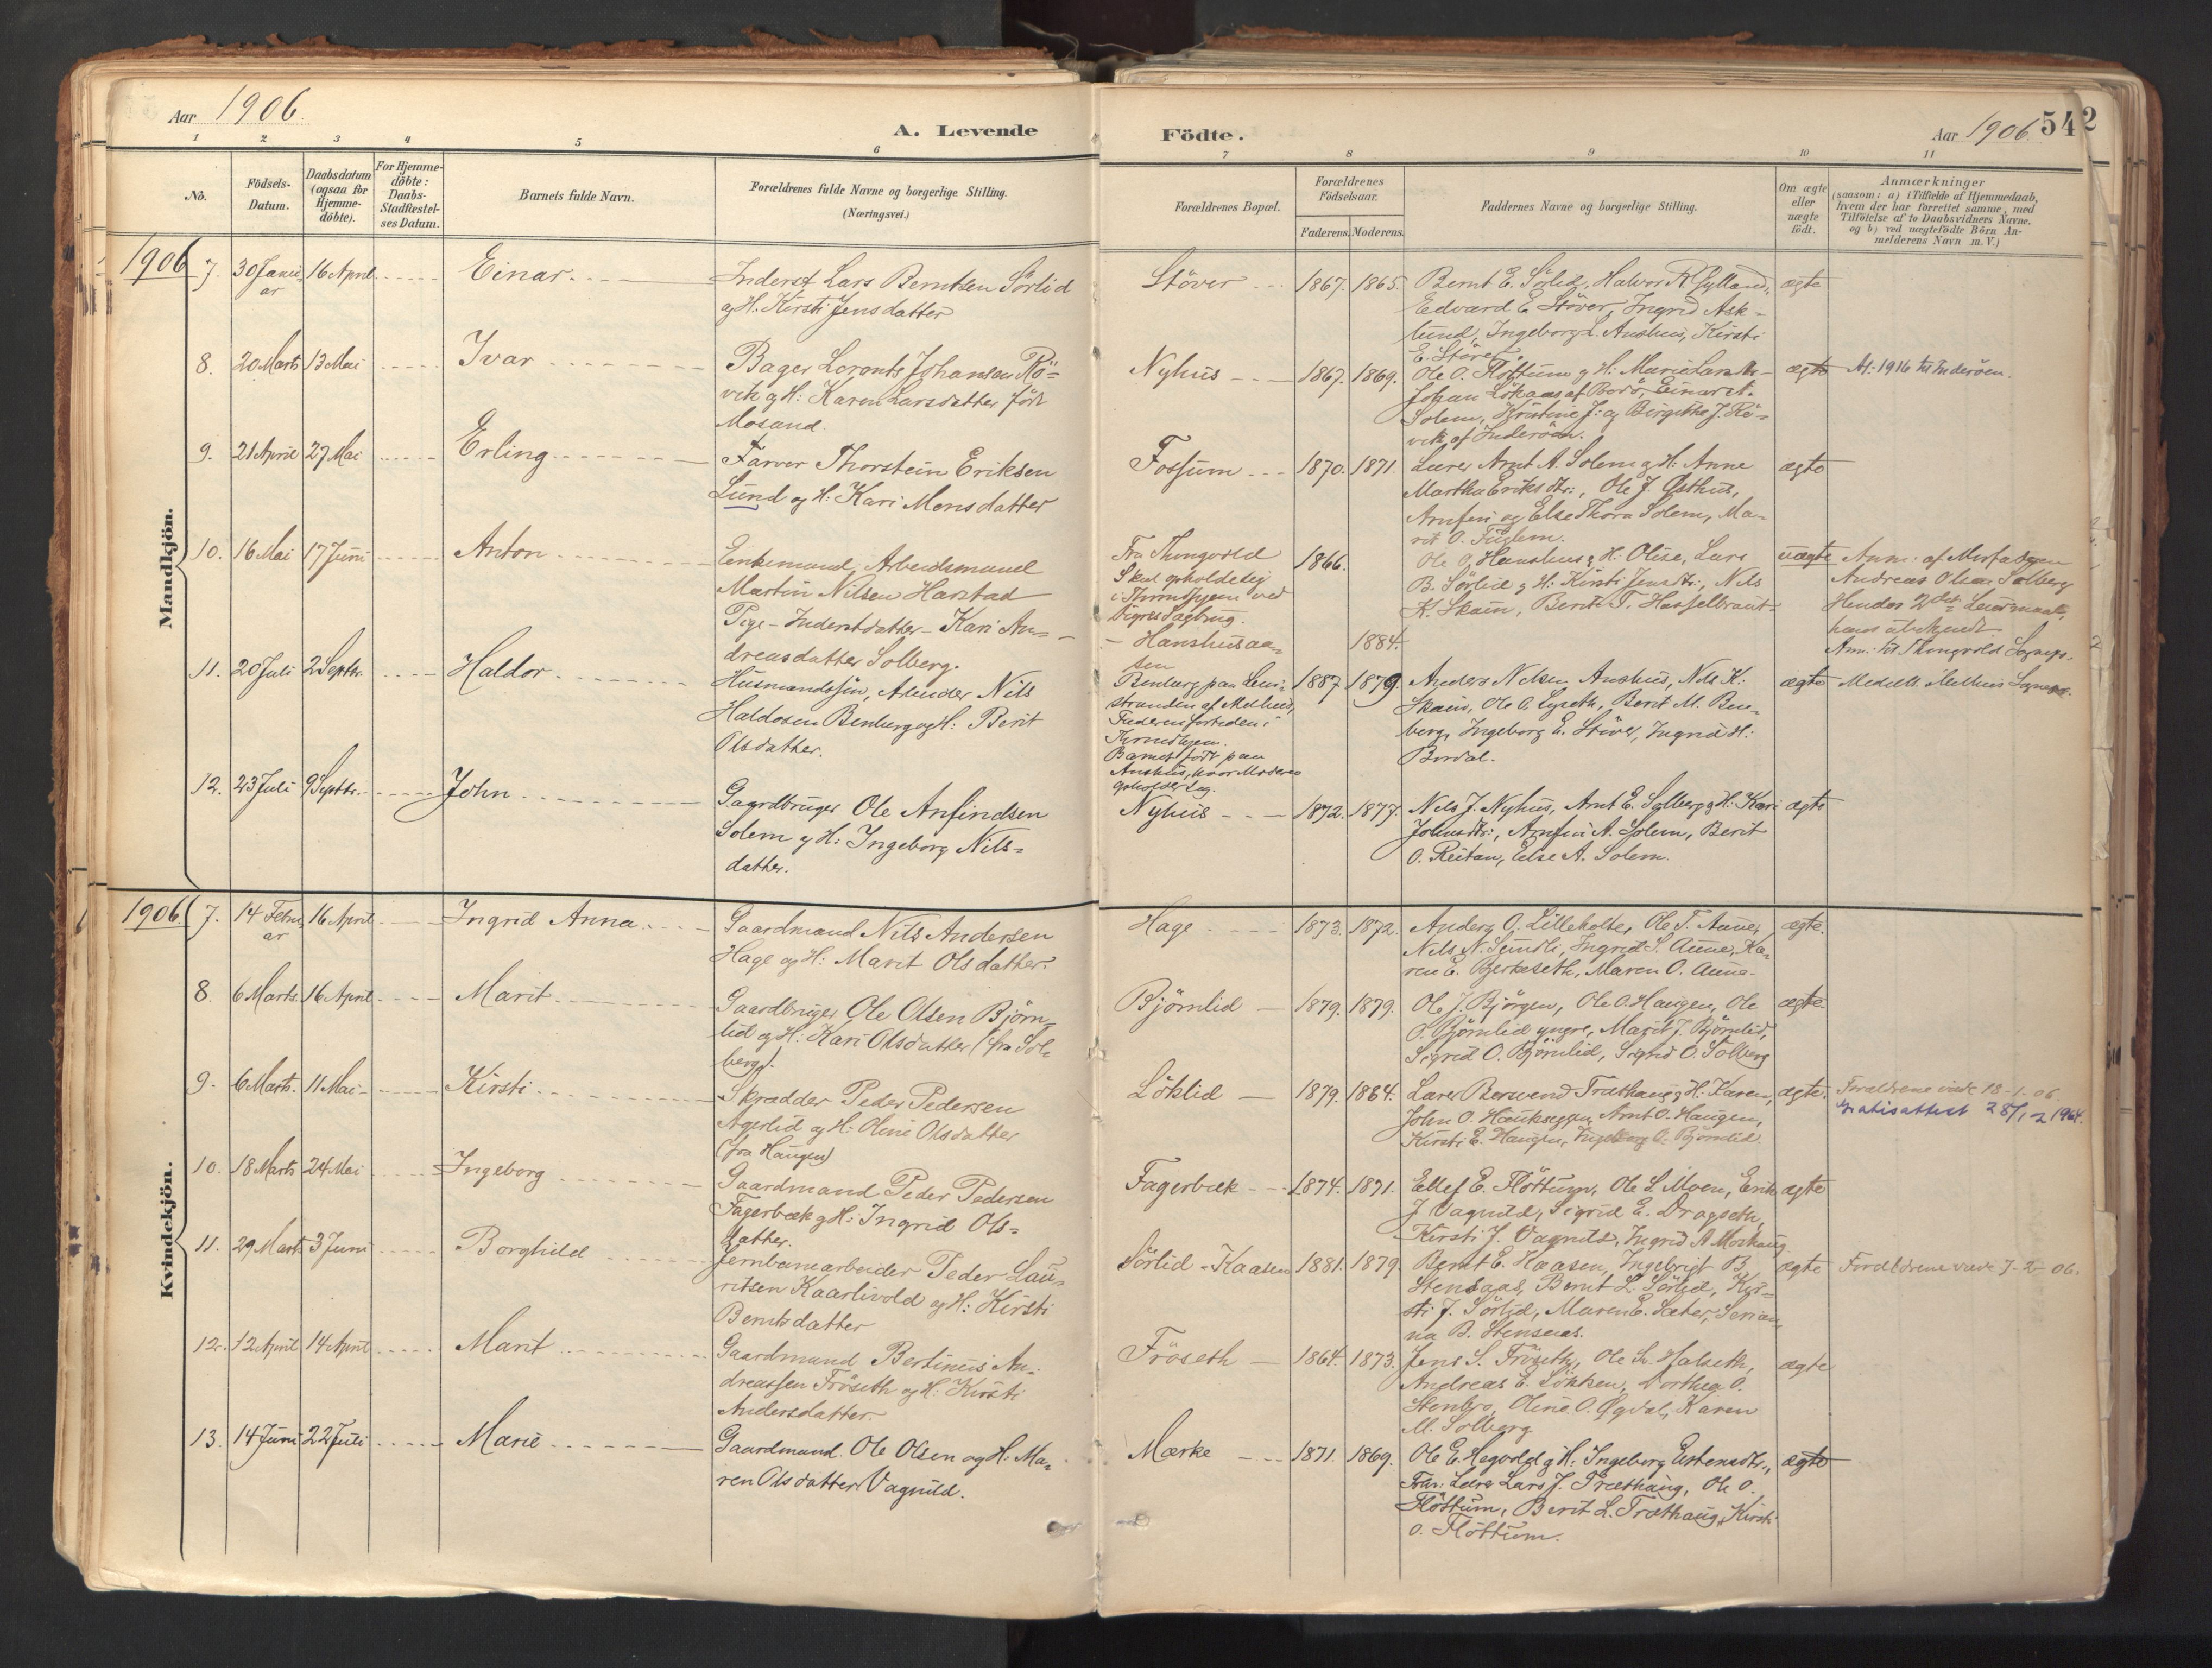 Aar 1906.
A. Levende
1 2 3 4 5 6
No.
Födsels-
Datum.
Daabsdatum
(ogsaa for
Hjemme-
döbte).
For Hjemme-
döbte:
Daabs-
Stadfæstel-
ses Datum.
Barnets fulde Navn.
Forældrenes fulde Navne og borgerlige Stilling.
(Næringsvei.)
Mandkjön.
1906 7. 30 Janu- 16 April Einar
ar
Inderst Lars Berntsen Sörlid
og H. Kirsti Jensdatter
8. 20 Marts 13 Mai Ivar
Bager Lorents Johansen Rö-
vik og H: Karen Larsdatter född
Mosand.
9. 21 April 27 Mai Erling
Farver Thorstein Eriksen
Lund og H: Kari Monsdatter
10. 16 Mai 17 Juni Anton
Enkemand, Arbeidsmand
Martin Nilsen Harstad
Pige - Inderstdatter - Kari An-
dreasdatter Solberg.
11. 20 Juli 2 Septbr. Haldor
Husmandssön, Arbeider Nils
Haldosen Benberg og H: Berit
Olsdatter.
12. 23 Juli 9 Septbr. John
Gaardbruger Ole Anfindsen
Solem og H: Ingeborg Nils-
datter.
Kvindekjön.
1906. 7. 14 Febru 16 April Ingrid Anna
ar
Gaardmand Nils Andersen
Hage og H: Marit Olsdatter.
8. 6 Marts 16 April Marit
Gaardbruger Ole Olsen Björn-
lid og H: Kari Olsdatter (fra Sol-
berg).
9. 6 Marts. 11 Mai Kirsti
Skrædder Peder Pedersen
Agerlid og H: Oline Olsdatter
(fra Haugen)
10. 18 Marts 24 Mai Ingeborg
Gaardmand Peder Pedersen
Fagerbæk og H: Ingrid Ols-
datter.
11. 29 Marts 3 Juni Borghild
Jernbanearbeider Peder Lau-
ritsen Kaarlivold og H: Kirsti
Berntsdatter
12. 12 April 14 April Marit
Gaardmand Bertinus An-
dreassen Fröseth og H: Kirsti
Andersdatter.
13. 14 Juni 22 Juli Marie
Gaardmand Ole Olsen og H: Ma-
ren Olsdatter Vagnild.
Födte.
Aar 1906. 542
7 8 9 10 11
Forældrenes Bopæl.
Forældrenes
Födselsaar.
Faderens. Moderens.
Faddernes Navne og borgerlige Stilling.
Om ægte
eller
uægte
födt.
Anmærkninger
(saasom: a) i Tilfælde af Hjemmedaab,
hvem der har forrettet samme, med
Tilföielse af to Daabsvidners Navne,
og b) ved uægtefödte Börn An-
melderens Navn m. V.)
Stöver 1867. 1865. Bernt E. Sörlid, Halvor R. Gylland, ægte
Edvard E. Stöver, Ingrid Ask-
lund, Ingeborg L. Aushus, Kirsti
E. Stöver.
Nyhus 1867. 1869. Ole O. Flottum og H: Marie Larsdtr. ægte At. 1916 til Inderöen.
Johan Lökaas af Bodö, Einar St.
Solem, Kristine J: og Birgitte J. Rö-
vik af Inderöen.
Fossum 1870. 1871. Lærer Arnt A. Solem og H: Anne ægte
Martha Eriksdtr:, Ole J. Östhus,
Arnfin og Else Thora Solem, Ma-
rit O. Fuglem.
Fra Thingvold
Skal opholde sig
i Throndhjem ved
Sagbrug.
1866. Ole O. Hanshus og H: Olise, Lars uægte
B. Sörlid og H: Kirsti Jensdtr:, Nils
K. Skain, Berit T. Hasselbraut.
Anm: af Morfaderen
Andreas Olsen Solberg
Hendes 2det Leiermaal,
hans ubekjendt.
Anm. til Thingvold Sognepr.
- Hanshusaa-
sen
1884.
Benberg paa Leni-
stranden af Melhus,
Faderen fortiden i
Throndhjem.
Barnet födt paa
Aushus, hvor Moderen
opholder sig.
1887. 1879. Anders Nilsen Aushus, Nils K. ægte Meddelt Melhus Sognepr.
Skain, Ole O. Lyseth, Berit M. Ben-
berg, Ingeborg E. Stöver, Ingrid H:
Bordal.
Nyhus 1872. 1877. Nils J. Nyhus, Arnt E. Solberg og H: Kari ægte
Johnsdtr:, Arnfin A. Solem, Berit
O. Reitan, Else A. Solem.
Hage 1873. 1872. Anders O. Lilleholte, Ole T. Aune, ægte.
Nils N. Sundli, Ingrid S. Aune, Ka-
ren E. Bjerkeseth, Maren O. Aune.
Björnlid 1879. 1879. Ole J. Björgen, Ole O. Haugen, Ole ægte
O. Björnlid yngre, Marit J. Björnlid,
Sigrid O. Björnlid, Sigrid O. Solberg
Löklid 1879. 1884. Lærer Berwend Træthaug og H: Karen, ægte. Forældrene viede 13-1-06.
John O. Hauksegjen, Arnt O. Haugen, Gratisattest 28/12 1964.
Kirsti E. Haugen, Ingeborg O. Björnlid.
Fagerbæk 1874. 1871. Ellef E. Flöttum, Ole L. Moen, Erik ægte
J. Vagnild, Sigrid E. Dragseth,
Kirsti J. Vagnild, Ingrid A. Moshaug
Sörlid-Kaasen 1881. 1879 Bernt E. Kaasen, Ingebrigt B. ægte Forældrene viede 7-2-06.
Stensaas, Bernt L. Sörlid, Kir-
sti J. Sörlid, Maren E. Sæter, Serian-
na B. Stensaas.
Fröseth 1864. 1873. Jens S. Fröseth, Ole Halseth, ægte
Andreas E. Lökken, Dorthea O.
Stenbro, Oline O. Ogdal, Karen
M. Solberg
Mærke 1871. 1869. Ole E. Hegvold og H: Ingeborg Estensdtr., ægte
Lærer Lars J. Træthaug, Ole O.
Flöttum, Berit L. Træthaug, Kirsti
O. Flöttum.